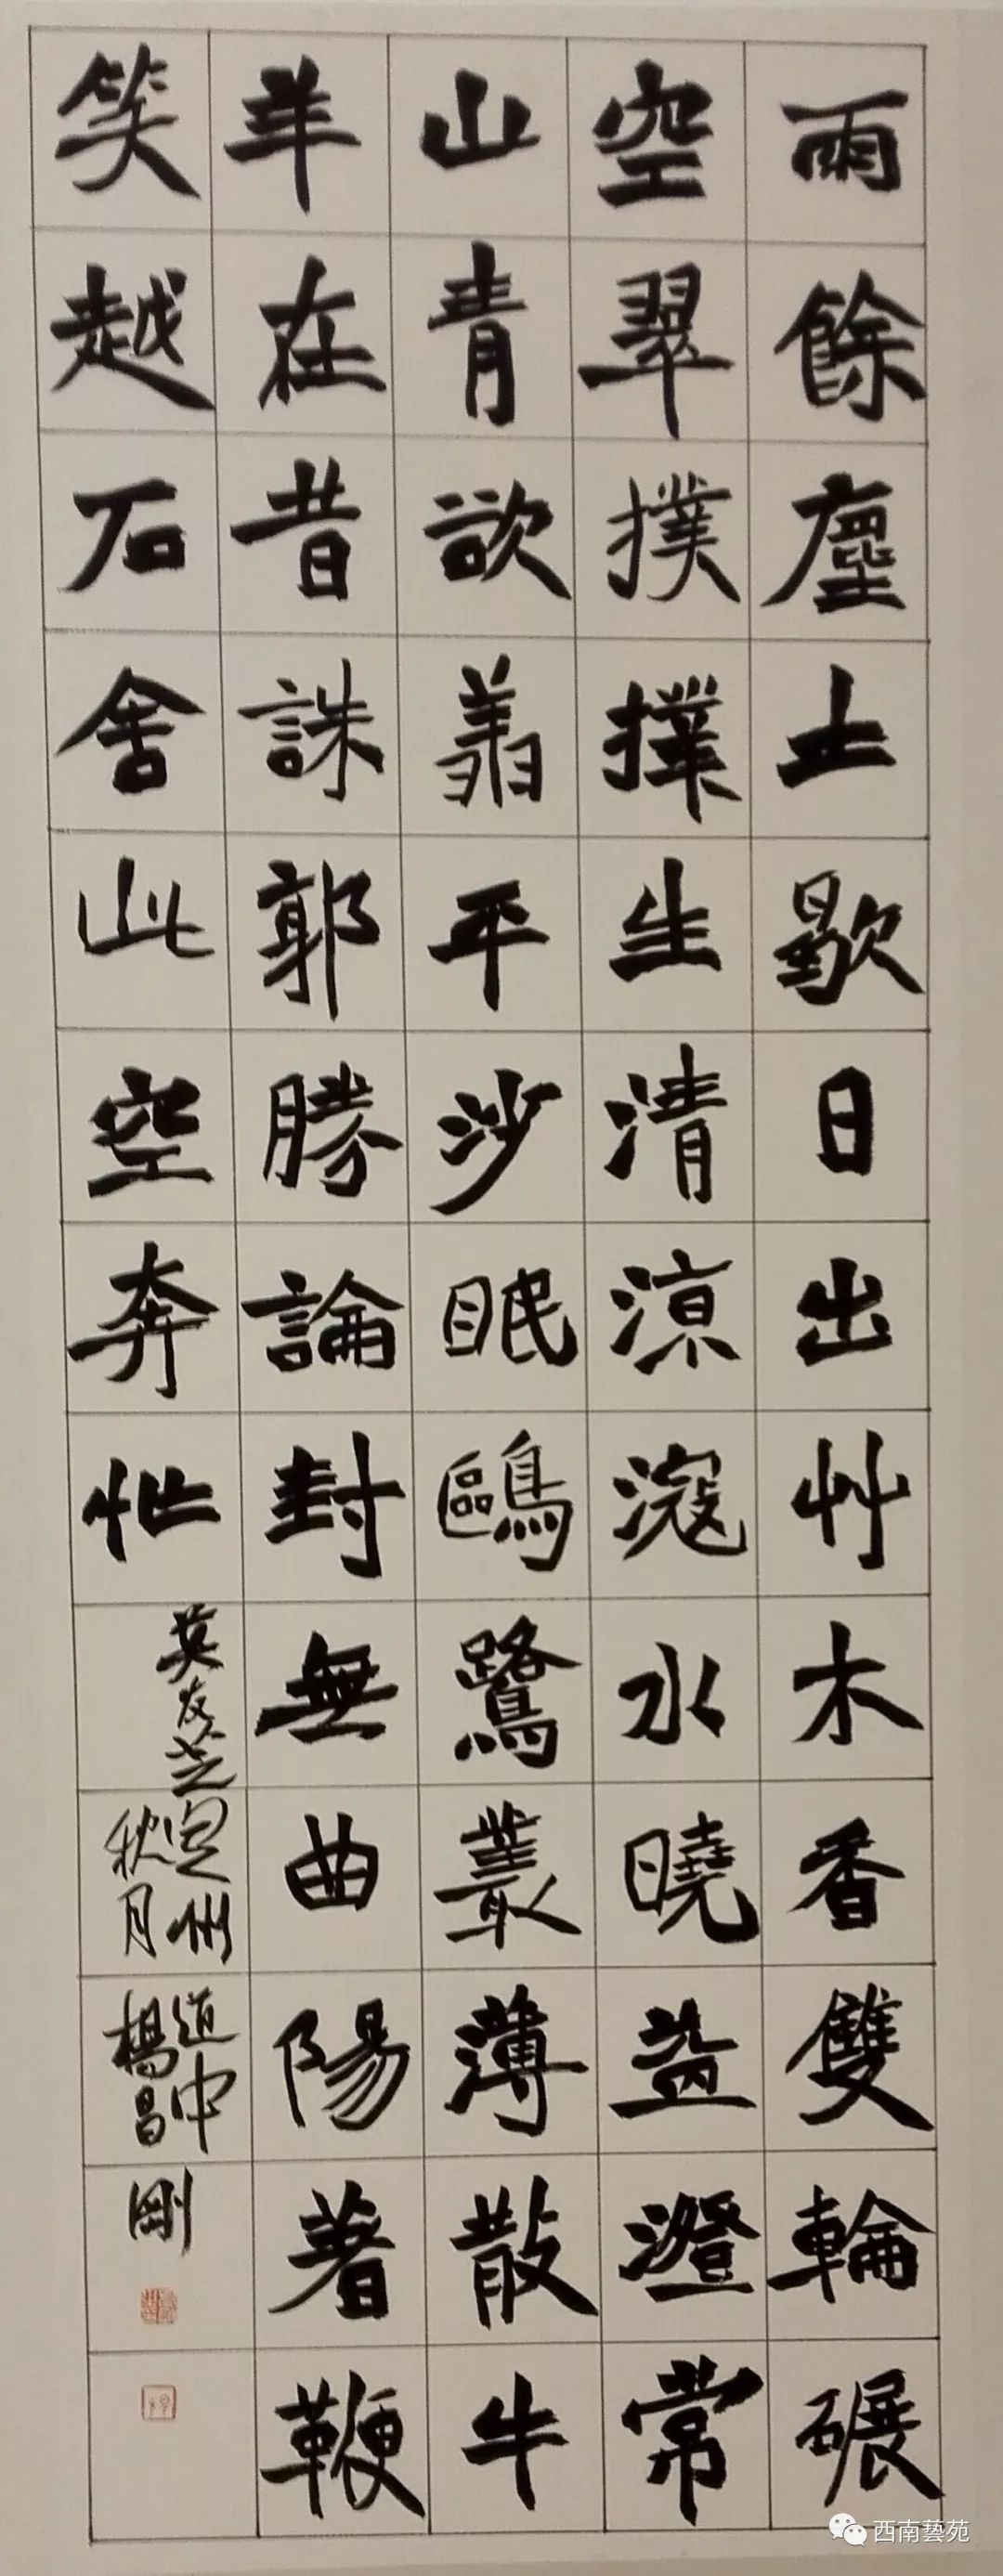 雨餘塵土歇日出艸木香雙輪碾
空翠撲撲生清涼寇水曉益澄常
山青欲翦平沙眠鷗鷺叢薄散牛
羊在昔誅郭勝論封無曲陽著鞭
笑越石舍此空奔忙
莫友芝定州
道中
秋月
楊昌剛
西南藝苑